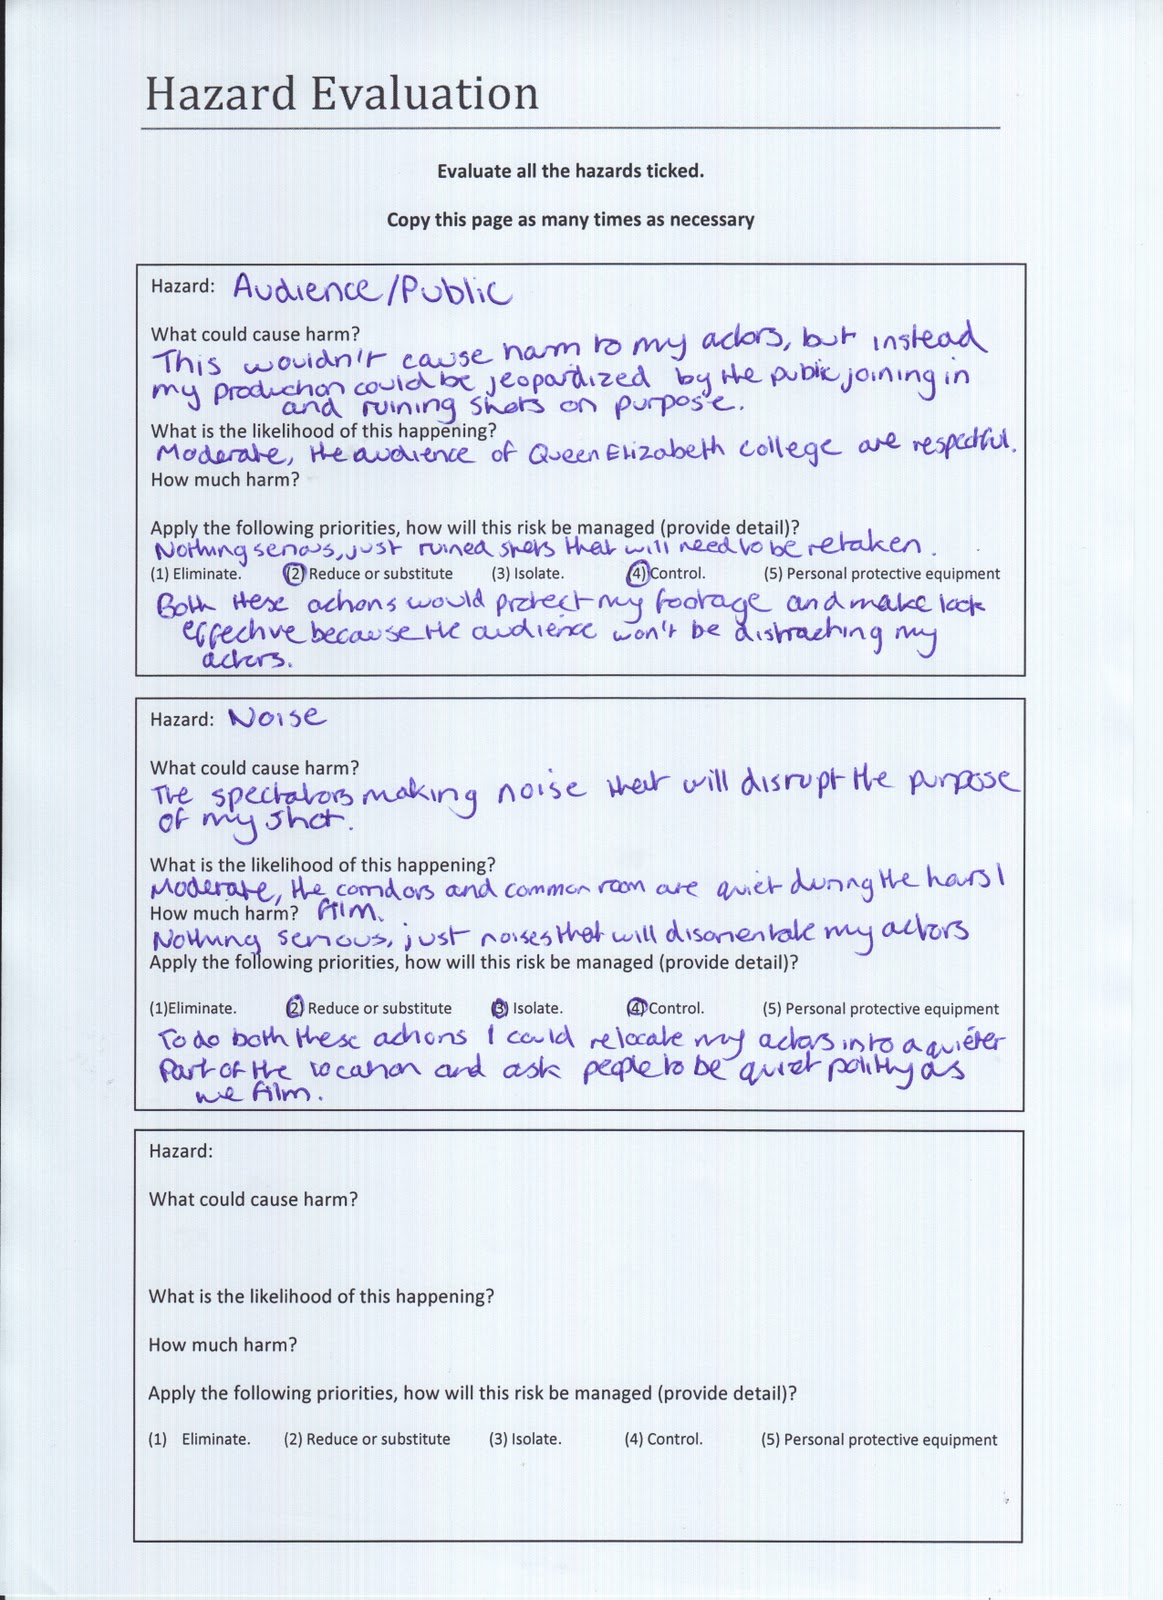 Hazard Evaluation
Evaluate all the hazards ticked.
Copy this page as many times as necessary
Hazard: Audience/Public
What could cause harm?
This wouldn't cause harm to my actors, but instead
my production could be jeopardized by the public joining in
and ruining shots on purpose.
What is the likelihood of this happening?
Moderate, the audience of Queen Elizabeth college are respectful.
How much harm?
Apply the following priorities, how will this risk be managed (provide detail)?
Nothing serious, just ruined shots that will need to be retaken.
(1) Eliminate. (2) Reduce or substitute (3) Isolate. (4) Control. (5) Personal protective equipment
Both these actions would protect my footage and make look
effective because the audience won't be distracting my
actors.
Hazard: Noise
What could cause harm?
The spectators making noise that will disrupt the purpose
of my shot.
What is the likelihood of this happening?
Moderate, the corridors and common room are quiet during the hours I
How much harm? film.
Nothing serious, just noises that will disorientate my actors
Apply the following priorities, how will this risk be managed (provide detail)?
(1)Eliminate. (2) Reduce or substitute (3) Isolate. (4) Control. (5) Personal protective equipment
To do both these actions I could relocate my actors into a quieter
part of the location and ask people to be quiet polithy as
we film.
Hazard:
What could cause harm?
What is the likelihood of this happening?
How much harm?
Apply the following priorities, how will this risk be managed (provide detail)?
(1) Eliminate. (2) Reduce or substitute (3) Isolate. (4) Control. (5) Personal protective equipment